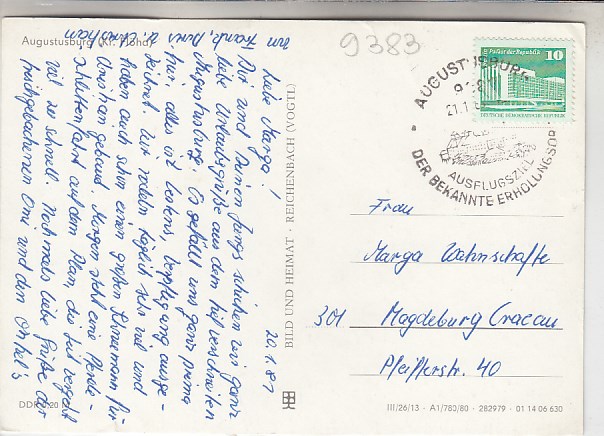 Augustusburg (Kr. Flöha)
9383
20.1.81
Liebe Marga!
Wir und Deinen Jungs schicken wir ganz
liebe Urlaubsgrüße aus dem tiefverschneiten
Augustusburg. Es gefällt uns ganz prima
hier, alles ist bestens, Verpflegung ausge-
zeichnet. Wir rodeln täglich sehr viel und
haben auch schon einen großen Schneemann für
Christian gebaut. Morgen steht eine Pferde-
schlittenfahrt auf dem Plan, die Zeit vergeht
viel zu schnell. Nochmals liebe Grüße der
frischgebackenen Omi und den Onkel's
von
Frank, Doris
u. Christian
BILD UND HEIMAT · REICHENBACH (VOGTL)
DDR 0,20 M
Palast der Republik
10
DEUTSCHE DEMOKRATISCHE REPUBLIK
AUGUSTUSBURG
9382
21.1.
AUSFLUGSZIEL
DER BEKANNTE ERHOLUNGSOR
Frau
Marga Wahnschaffe
301 Magdeburg Cracau
Pfeifferstr. 40
III/26/13 · A1/780/80 · 282979 · 01 14 06 630